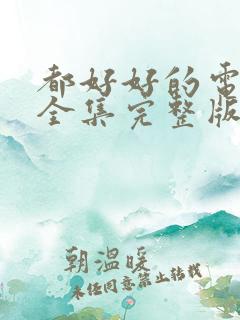 都好好的电
全集完整版
朝温暖
未经同意禁止转载